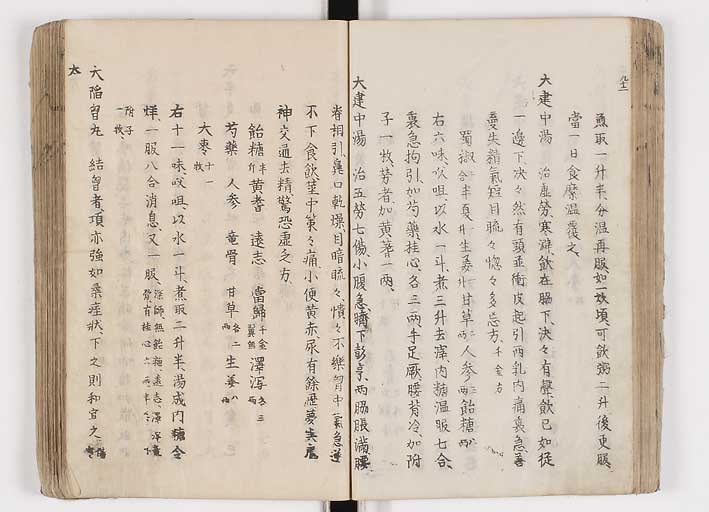 八十二
煮取一升半、分温再服、如一炊頃、可飲粥二升後更服、
當一日食糜温覆之、
大建中湯　治虚勞、寒澼飲在脇下、决々有聲飲已如従
一邊下决々然有頭並衝皮起引两乳内痛裏急善
夢失精氣短目䀮々惚々多忘方、千金方
蜀椒 合 半夏 升 生姜 甘草 两 人参 两 飴糖 两
右六味、㕮咀、以水一斗、煮三升去滓、内糖温服七合、
裏急拘引、加芍藥桂心、各三两、手足厥腰背冷、加附
子一枚、勞者加黄蓍一两、
大建中湯　治五勞七傷、小腹急、臍下彭亨、两脇脹満腰
脊相引、鼻口乾燥、目暗䀮々、憒々不樂、胷中氣急逆
不下食飲、茎中策々痛、小便黄赤、尿有餘瀝夢与鬼
神交通去精驚恐虚乏方、
飴糖 半斤 黄耆 遠志 當歸 千金翼無 澤泻 各三两
芍藥 人参 竜骨 甘草 各二两 生姜 八两
大枣 十一枚
右十一味、㕮咀、以水一斗、煮取二升半、湯成内糖令
烊、一服八合消息、又一服、深師無飴糖、遠志澤泻
附子一枚、
大陥胷丸　結胷者項亦強如柔痓状下之則和宜之
太